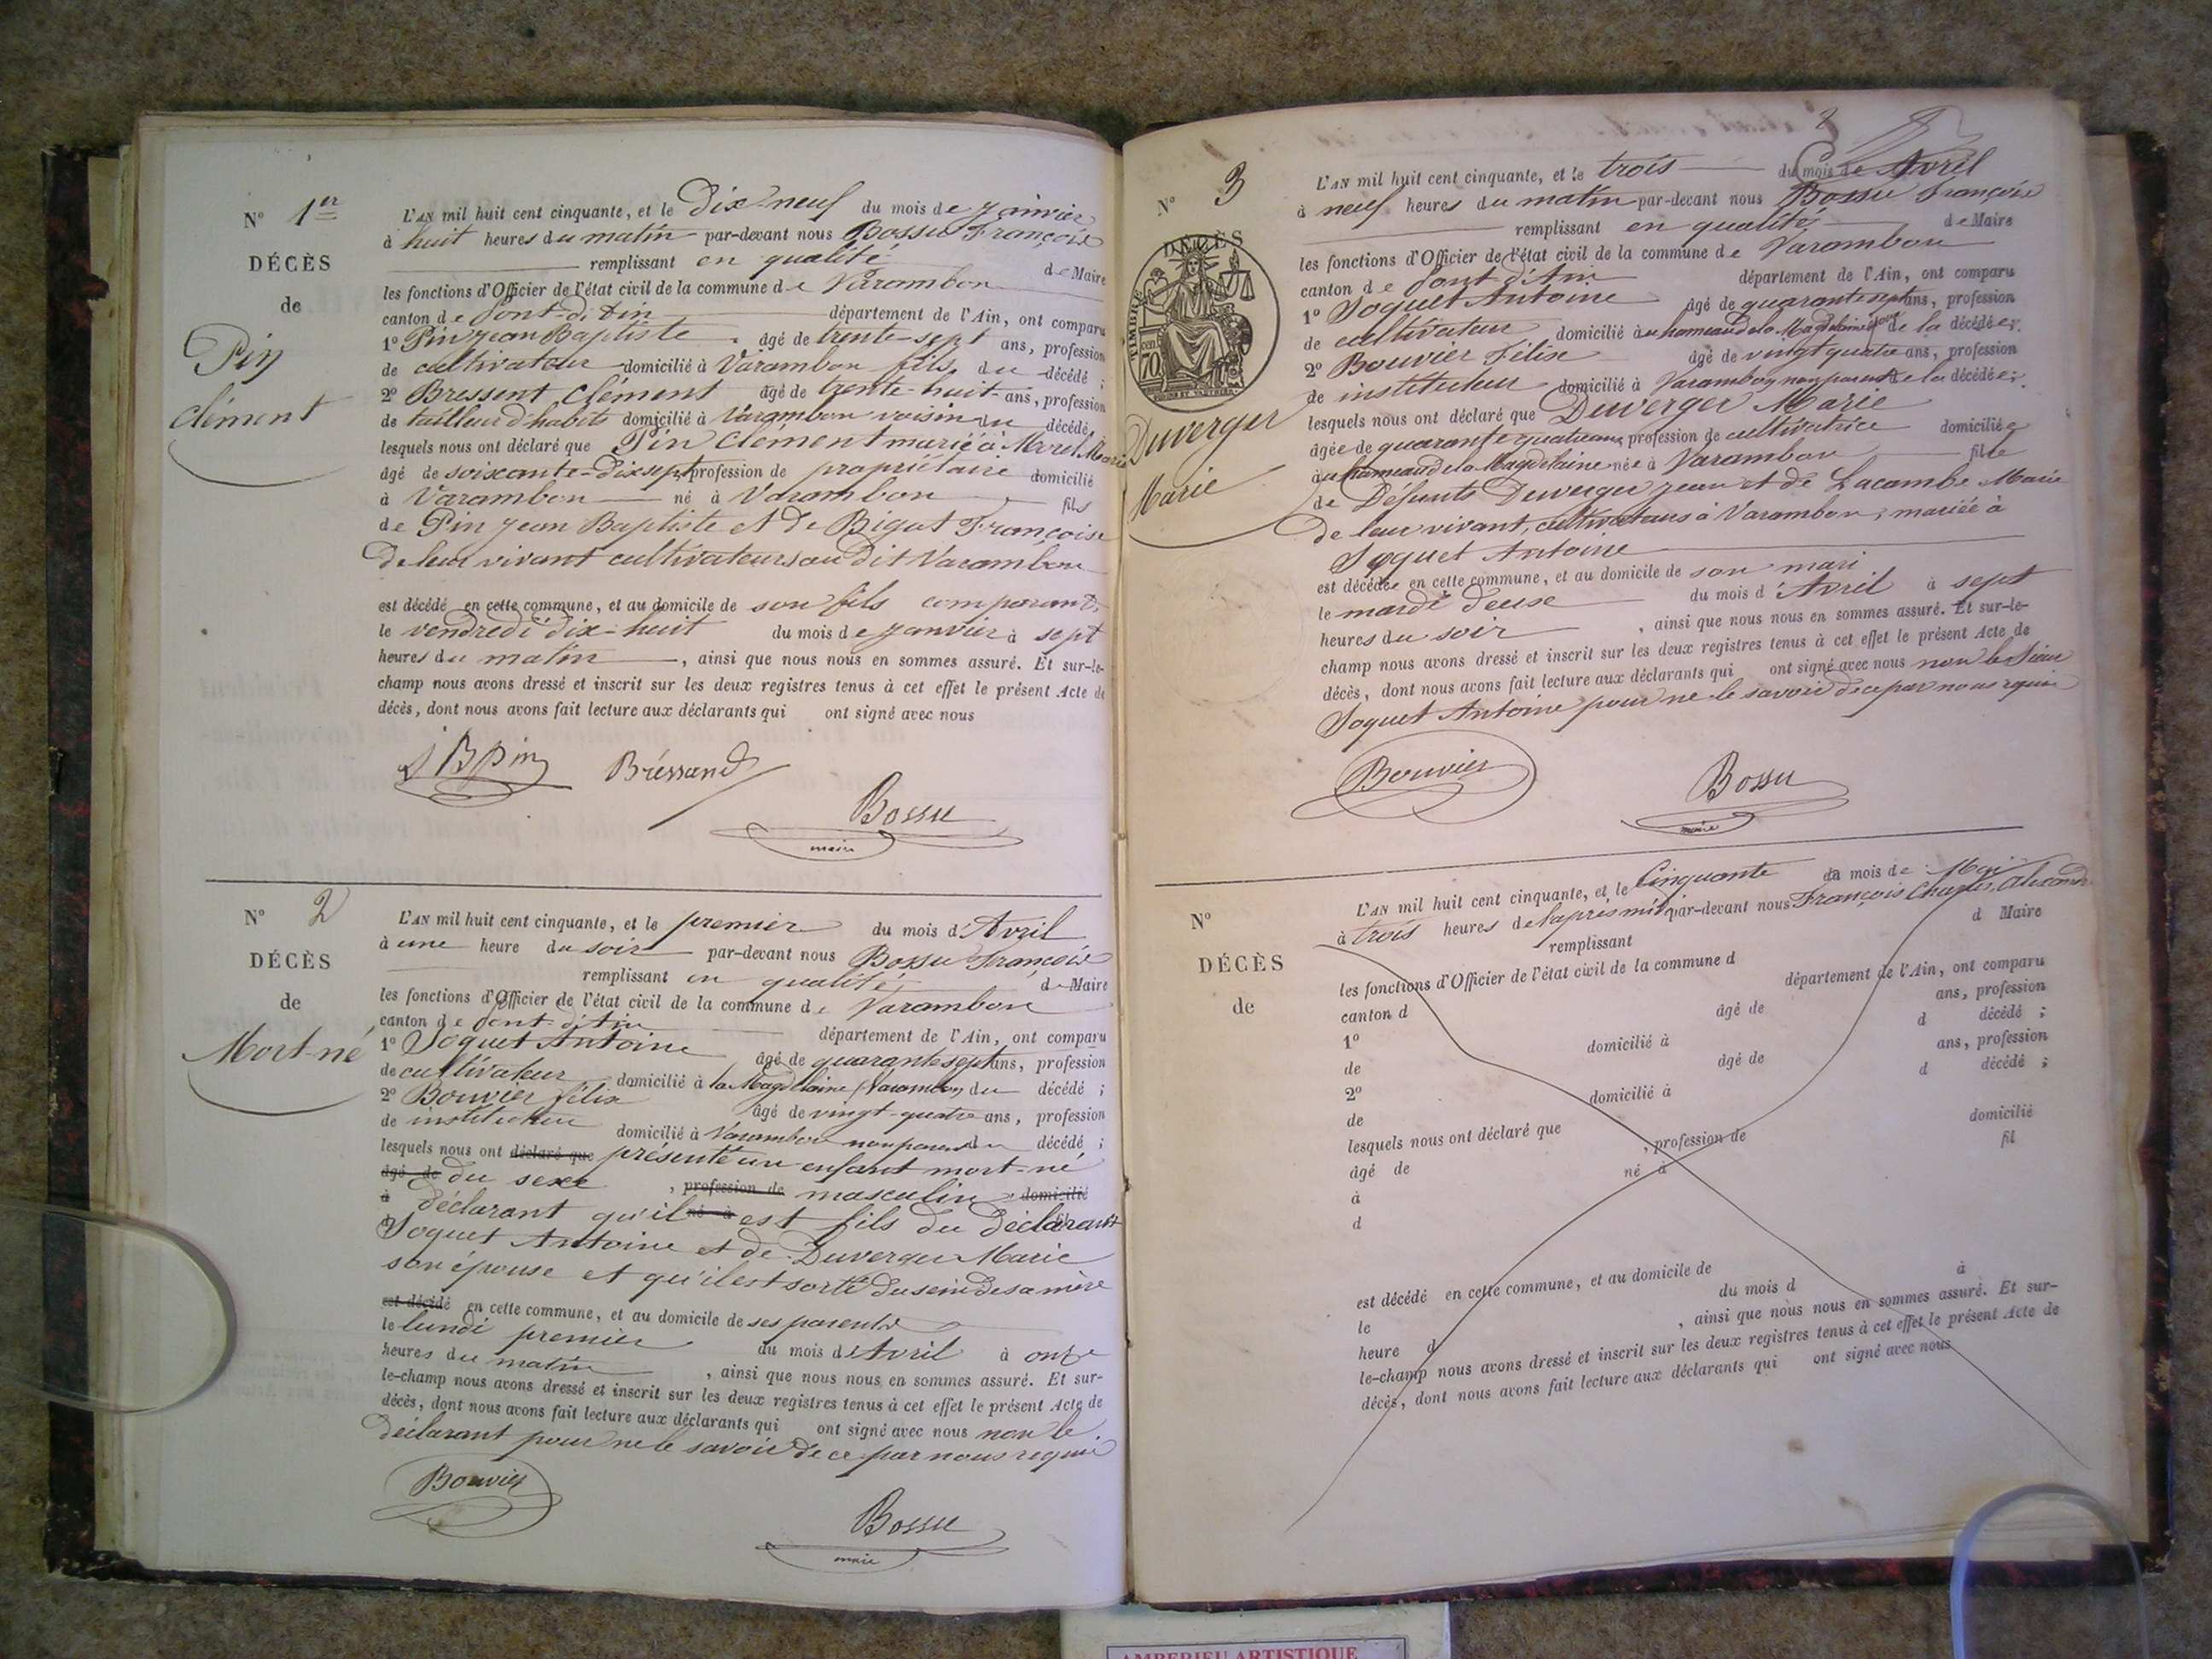 N° 1er
DÉCÈS
de
Pin
Clément
L'AN mil huit cent cinquante, et le Dix-neuf du mois de Janvier
à huit heures du matin par-devant nous Bossu François
remplissant en qualité de Maire
les fonctions d'Officier de l'état civil de la commune de Varambon
canton de Pont-d'Ain département de l'Ain, ont comparu
1° Pin Jean Baptiste âgé de trente-sept ans, profession
de cultivateur domicilié à Varambon fils du décédé ;
2° Bressent Clément âgé de trente-huit ans, profession
de tailleur d'habits domicilié à Varambon voisin du décédé,
lesquels nous ont déclaré que Pin Clément marié à Morel Marie
âgé de soixante-dix sept, profession de propriétaire domicilié
à Varambon né à Varambon fils
de Pin Jean Baptiste et de Bigot Françoise
De leur vivant cultivateurs au Dit Varambon
est décédé en cette commune, et au domicile de son fils comparant
le vendredi dix-huit du mois de Janvier à sept
heures du matin, ainsi que nous nous en sommes assuré. Et sur-le-
champ nous avons dressé et inscrit sur les deux registres tenus à cet effet le présent Acte de
décès, dont nous avons fait lecture aux déclarants qui ont signé avec nous
J B Pin Bressand
Bossu
maire
N° 2
DÉCÈS
de
Mort-né
L'AN mil huit cent cinquante, et le premier du mois d'Avril
à une heure du soir par-devant nous Bossu François
remplissant en qualité de Maire
les fonctions d'Officier de l'état civil de la commune de Varambon
canton de Pont-d'Ain département de l'Ain, ont comparu
1° Joquet Antoine âgé de quarante sept ans, profession
de cultivateur domicilié à la Magdelaine (Varambon) du décédé ;
2° Bouvier félix âgé de vingt-quatre ans, profession
de instituteur domicilié à Varambon non parent du décédé ;
lesquels nous ont déclaré que présenté un enfant mort-né
âgé de du sexe, profession de masculin, domicilié
à déclarant qu'il né à est fils du déclarant
Joquet Antoine et de Duverger Marie
son épouse et qu'il est sorti du sein de sa mère
est décédé en cette commune, et au domicile de ses parents
le lundi premier du mois d'Avril à onze
heures du matin, ainsi que nous nous en sommes assuré. Et sur-
le-champ nous avons dressé et inscrit sur les deux registres tenus à cet effet le présent Acte de
décès, dont nous avons fait lecture aux déclarants qui ont signé avec nous non le
déclarant pour ne le savoir de ce par nous requis
Bouvier
Bossu
maire
2
N° 3
DÉCÈS
TIMBRE
70
Duverger
Marie
L'AN mil huit cent cinquante, et le trois du mois de Avril
à neuf heures du matin par-devant nous Bossu François
remplissant en qualité de Maire
les fonctions d'Officier de l'état civil de la commune de Varambon
canton de Pont d'Ain département de l'Ain, ont comparu
1° Joquet Antoine âgé de quarante sept ans, profession
de cultivateur domicilié au hameau de la Magdelaine de la décédée ;
2° Bouvier Félix âgé de vingt quatre ans, profession
de instituteur domicilié à Varambon non parent de la décédée ;
lesquels nous ont déclaré que Duverger Marie
âgée de quarante quatre ans, profession de cultivatrice domiciliée
au hameau de la Magdelaine née à Varambon fille
de Défunts Duverger Jean et de Lacombe Marie
De leur vivant, cultivateurs à Varambon, mariée à
Joquet Antoine
est décédée en cette commune, et au domicile de son mari
le mardi deux du mois d'Avril à sept
heures du soir, ainsi que nous nous en sommes assuré. Et sur-le-
champ nous avons dressé et inscrit sur les deux registres tenus à cet effet le présent Acte de
décès, dont nous avons fait lecture aux déclarants qui ont signé avec nous non le Sieur
Joquet Antoine pour ne le savoir de ce par nous requis
Bouvier
Bossu
maire
N°
DÉCÈS
de
L'AN mil huit cent cinquante, et le Cinquante du mois de Mai
à trois heures de l'après midi par-devant nous François Charles
remplissant d Maire
les fonctions d'Officier de l'état civil de la commune d
canton d département de l'Ain, ont comparu
1° âgé de ans, profession
de domicilié à d décédé ;
2° âgé de ans, profession
de domicilié à d décédé ;
lesquels nous ont déclaré que
âgé de , profession de domicilié
à né à fil
d
est décédé en cette commune, et au domicile de
le du mois d à
heure d , ainsi que nous nous en sommes assuré. Et sur-
le-champ nous avons dressé et inscrit sur les deux registres tenus à cet effet le présent Acte de
décès, dont nous avons fait lecture aux déclarants qui ont signé avec nous
AMBERIEU ARTISTIQUE